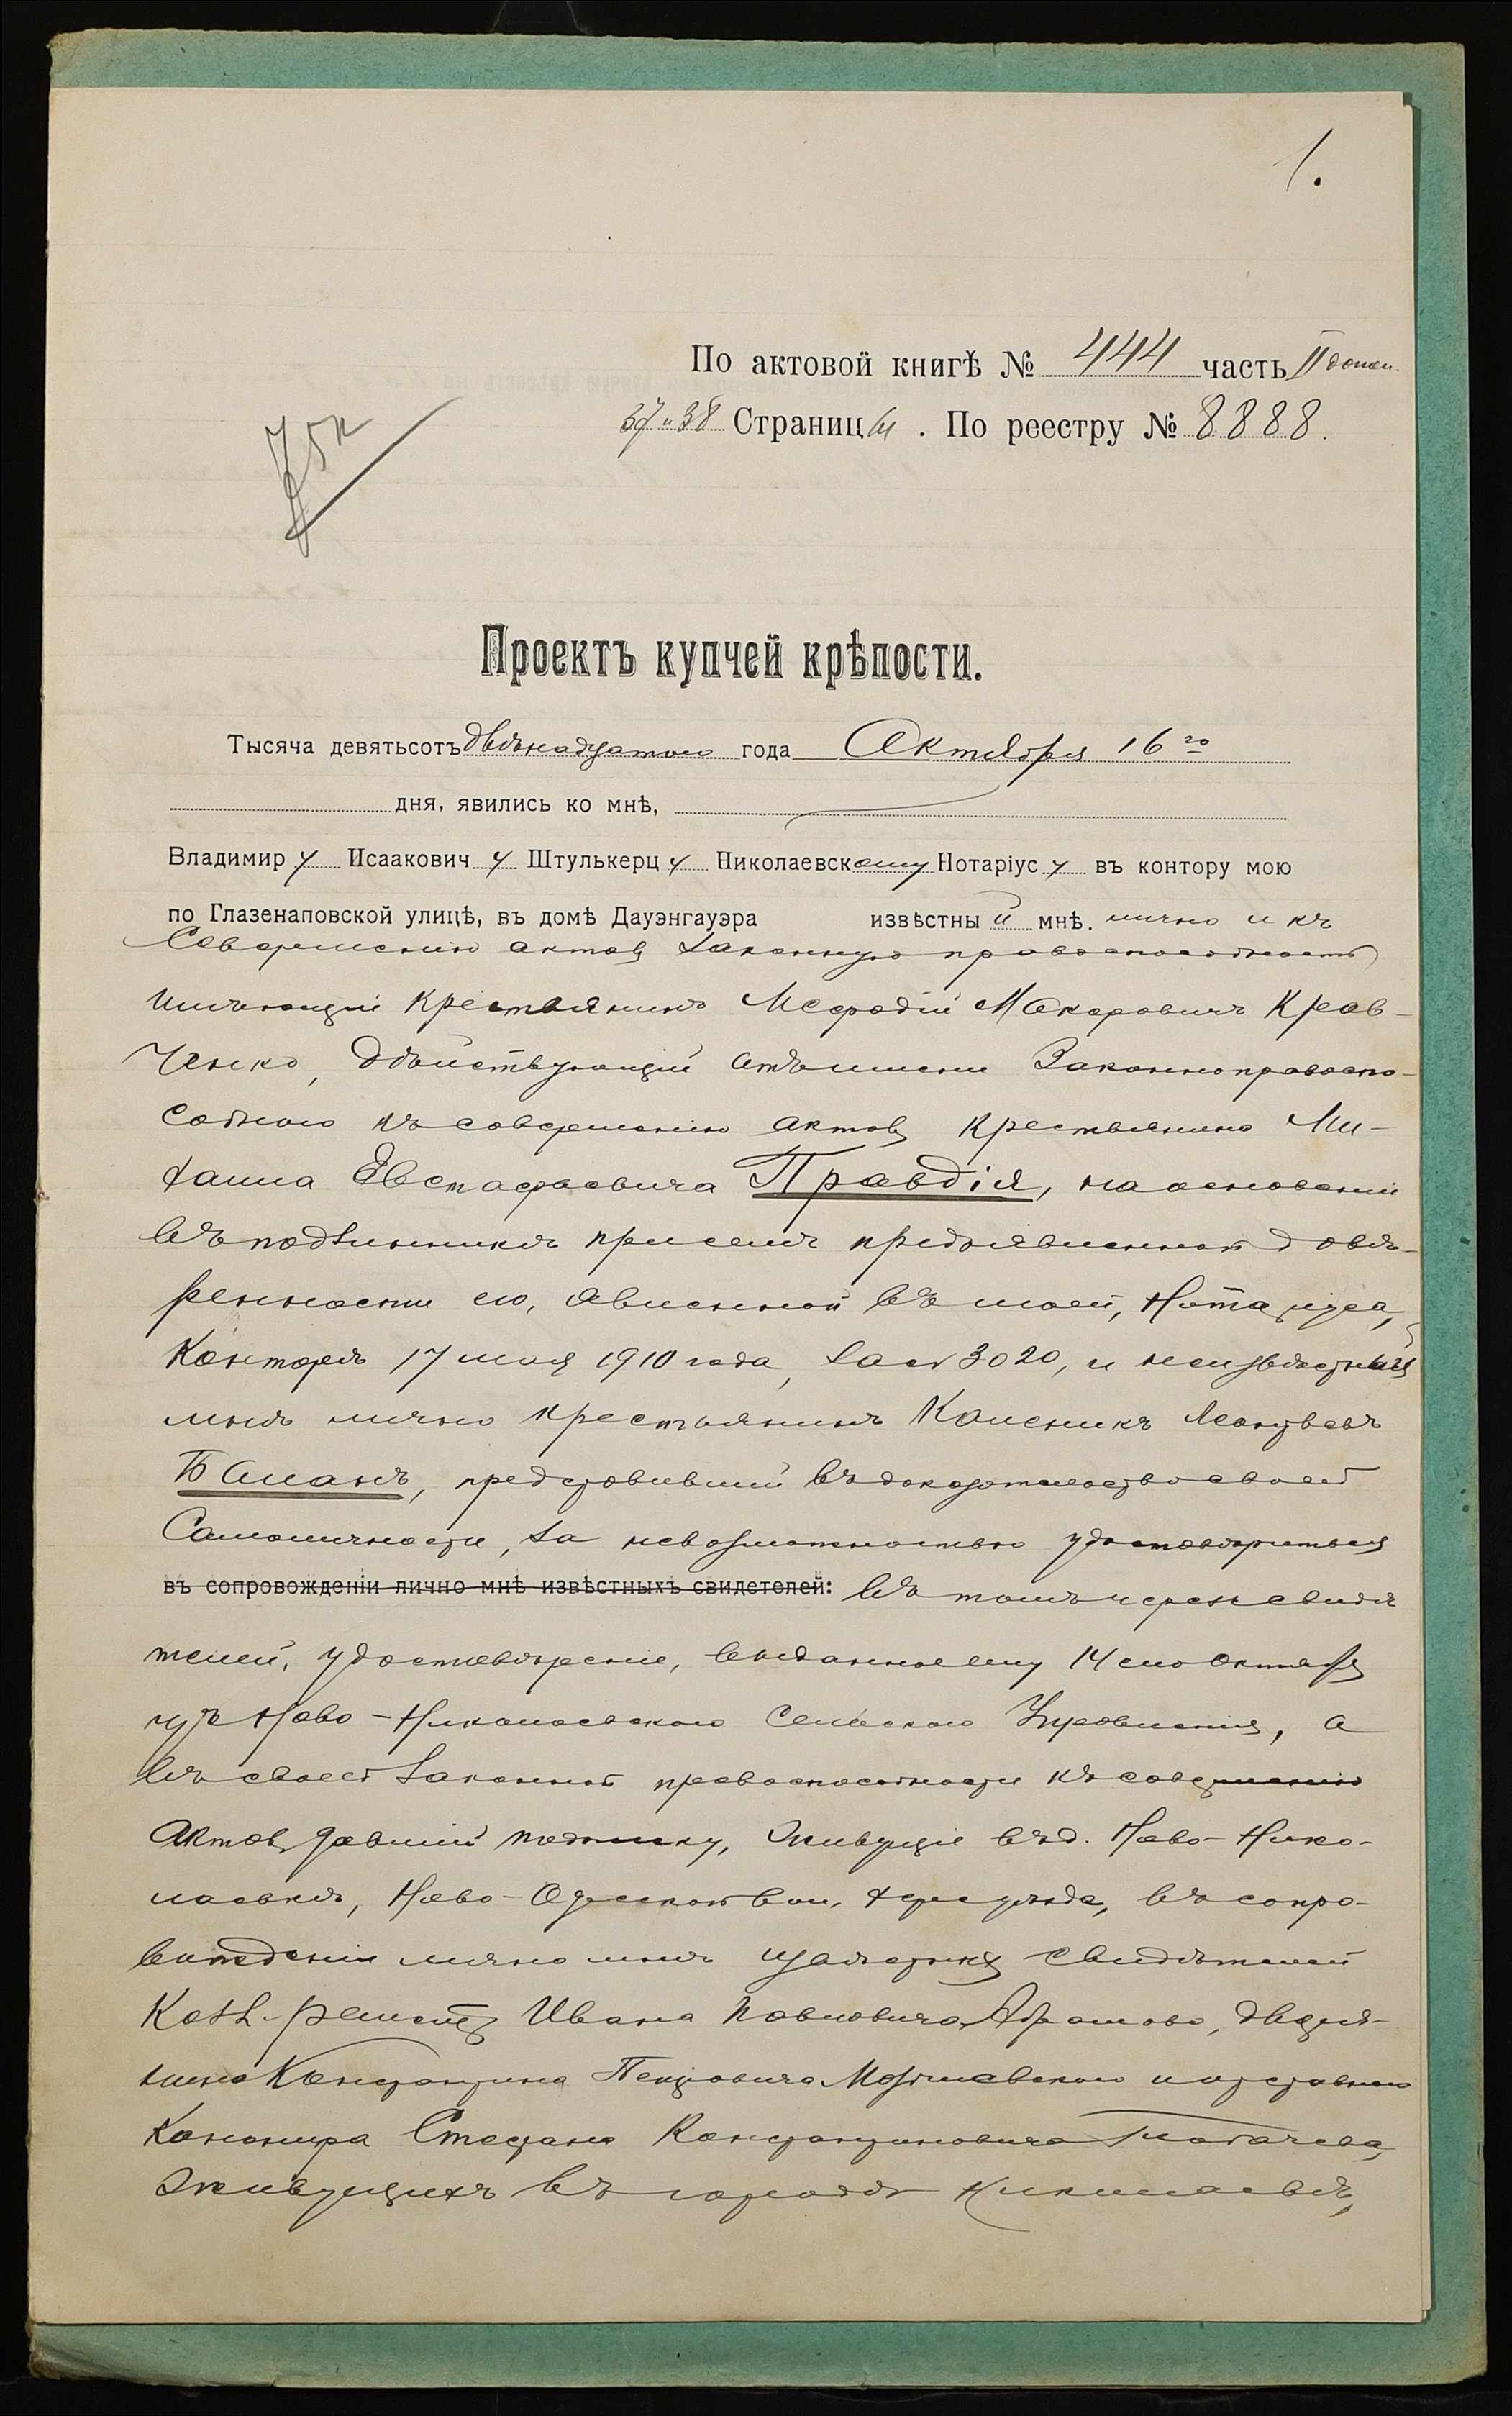 1.
По актовой книгѣ № 444 часть II
37 и 38 Страницы. По реестру № 8888.
Проектъ купчей крѣпости.
Тысяча девятьсотъ двѣнадцатаго года Октября 16го
дня, явились ко мнѣ,
Владимиру Исааковичу Штулькерцу Николаевскому Нотаріусу въ контору мою
по Глазенаповской улицѣ, въ домѣ Дауэнгауэра извѣстный мнѣ. лично и къ
Совершенію актовъ законную правоспособность
имѣющій крестьянинъ Мефодій Макаровичъ Крав-
ченко, дѣйствующій отъ имени Законноправоспо-
собнаго къ совершенію актовъ крестьянина Ми-
хаила Евстафьевича Правдія, на основаніи
въ подлинникѣ при семъ предъявленной довѣ-
ренности его, явленной въ моей, Нотаріуса,
Конторѣ 17 мая 1910 года, за № 3020, и неизвѣстный
мнѣ лично крестьянинъ Каленикъ Леонтьевъ
Баланъ, представившій въ доказательство своей
Самоличности, за невозможностью удостовѣриться
въ сопровожденіи лично мнѣ извѣстныхъ свидетелей: въ томъ черезъ свидѣ
телей, удостовѣреніе, выданное ему 14 сего Октября
изъ Ново-Николаевскаго Сельскаго Управленія, а
въ своей законной правоспособности къ совершенію
Актовъ давшій подписку, живущіе въ д. Ново-Нико-
лаевкѣ, Ново-Одесской вол. Херс. уѣзда, въ сопро-
вожденіи лично мнѣ извѣстныхъ свидѣтелей
Ивана Павловича Абрамова, дворя-
нина Константина Петровича Могилевскаго и отставного
Канонира Стефана Константиновича
живущихъ въ городѣ Николаевѣ,